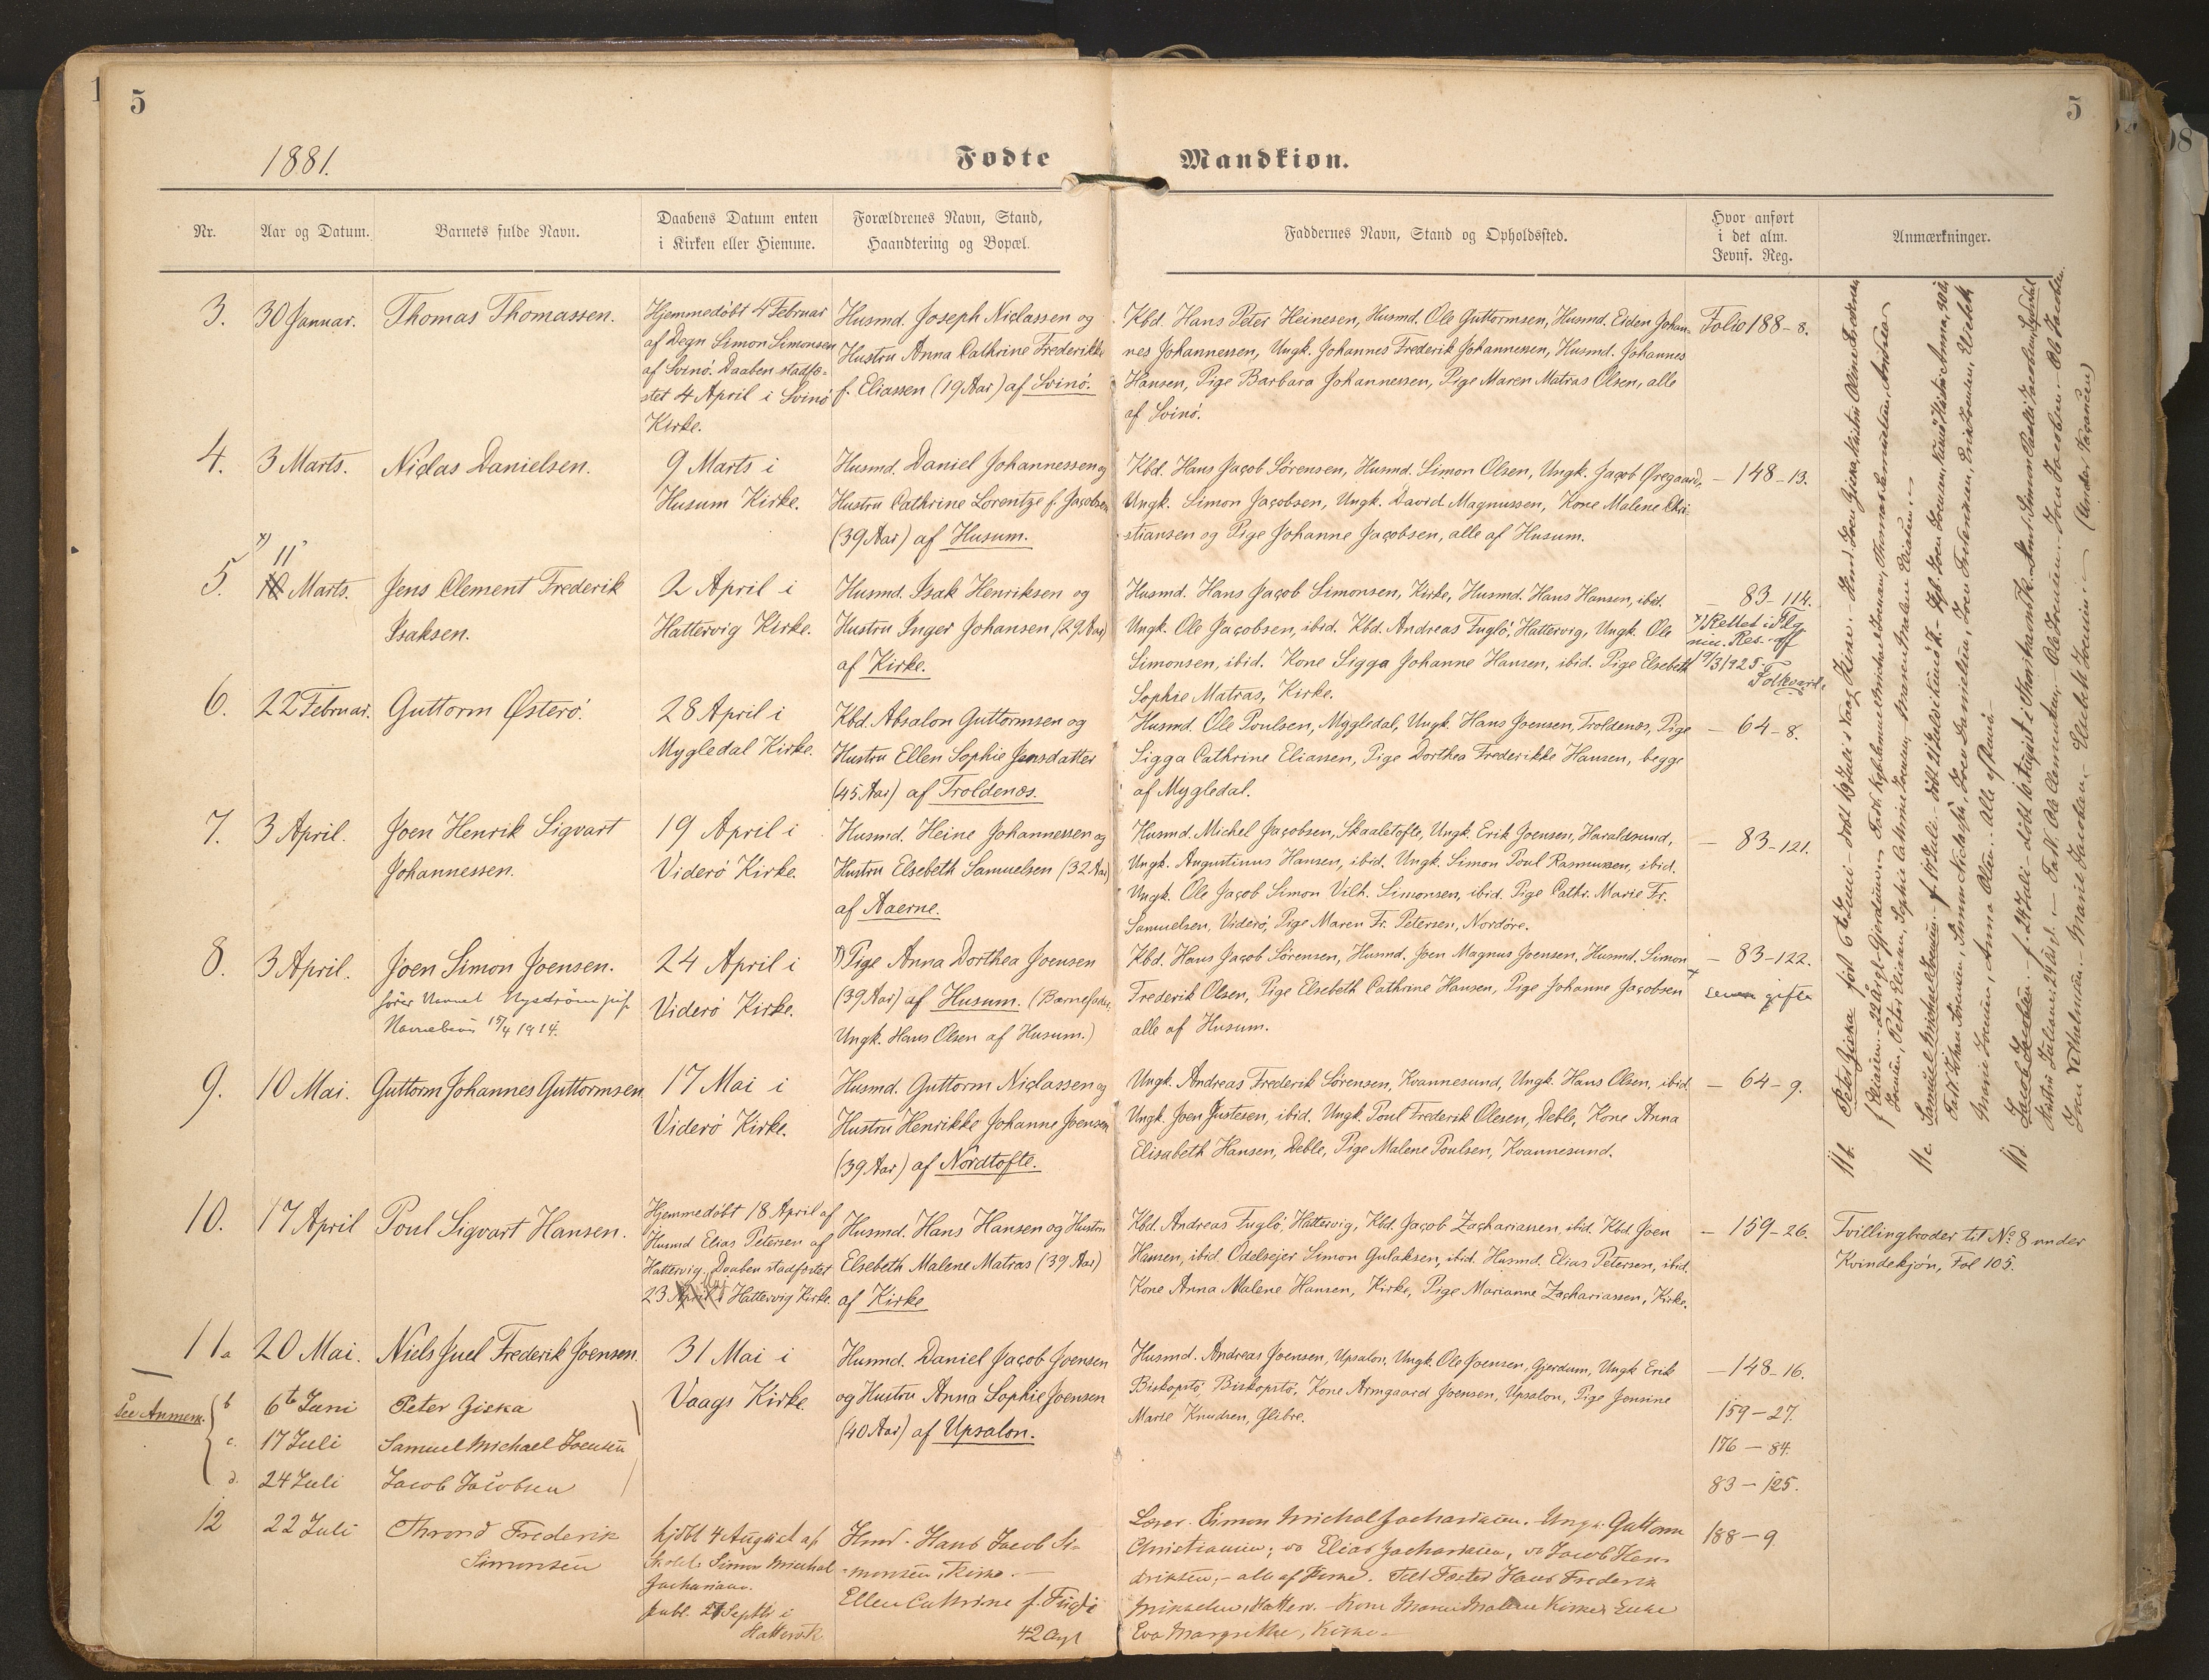 5
5
1881.
Fødte Mandkiøn.
Nr.
Aar og Datum.
Barnets fulde Navn.
Daabens Datum enten
i Kirken eller Hiemme.
Forældrenes Navn, Stand,
Haandtering og Bopæl.
Faddernes Navn, Stand og Opholdssted.
Hvor anført
i det alm.
Jevnf. Reg.
Anmærkninger.
3.
30 Januar.
Thomas Thomassen.
Hjemmedøbt 4 Februar
af Degn Simon Simonsen
af Svinø. Daaben stadfæ-
stet 4 April i Svinø
Kirke.
Husmd. Joseph Niclassen og
Hustru Anna Cathrine Frederikke
f. Eliassen (19 Aar) af Svinø.
Kbd. Hans Peter Heinesen, Husmd. Ole Guttormsen, Husmd. Eiden Johan-
nes Johannessen, Ungk. Johannes Frederik Johannessen, Husmd. Johannes
Hansen, Pige Barbara Johannessen, Pige Maren Matras Olsen, alle
af Svinø.
Folio 188-8.
4.
3 Marts.
Niclas Danielsen.
9 Marts i
Husum Kirke.
Husmd. Daniel Johannessen og
Hustru Cathrine Lorentze f. Jacobsen
(39 Aar) af Husum.
Kbd. Hans Jacob Sørensen, Husmd. Simon Olsen, Ungk. Jacob Øregaard,
Ungk. Simon Jacobsen, Ungk. David Magnussen, Kone Malene Chri-
stiansen og Pige Johanne Jacobsen, alle af Husum.
- 148-13.
5.
11
10 Marts.
Jens Clement Frederik
Isaksen.
2 April i
Hattervig Kirke.
Husmd. Isak Henriksen og
Hustru Inger Johansen (29 Aar)
af Kirke.
Husmd. Hans Jacob Simonsen, Kirke, Husmd. Hans Hansen, ibid.
Ungk. Ole Jacobsen, ibid. Kbd. Andreas Fuglø, Hattervig, Ungk. Ole
Simonsen, ibid. Kone Sigga Johanne Hansen, ibid. Pige Elsebeth
Sophie Matras, Kirke.
- 83-114.
Rettet i Flg
min. Res. af
19/3 1925
6.
22 Februar.
Guttorm Østerø.
28 April i
Mygledal Kirke.
Kbd. Absalon Guttormsen og
Hustru Ellen Sophie Jensdatter
(45 Aar) af Troldenæs.
Husmd. Ole Poulsen, Myggledal, Ungk. Hans Joensen, Troldenæs, Pige
Sigga Cathrine Eliassen, Pige Dorthea Frederikke Hansen, begge
af Mygledal.
- 64-8.
7.
3 April.
Joen Henrik Sigvart
Johannessen.
19 April i
Viderø Kirke.
Husmd. Heine Johannessen og
Hustru Elsebeth Samuelsen (32 Aar)
af Aaerne.
Husmd. Michel Jacobsen, Skaaletofte, Ungk. Erik Joensen, Haraldsund,
Ungk. Augustinus Hansen, ibid. Ungk. Simon Poul Rasmussen, ibid.
Ungk. Ole Jacob Simon Vilh. Simonsen, ibid. Pige Cathr. Marie Fr.
Samuelsen, Viderø, Pige Maren Fr. Petersen, Nordøre.
- 83-121.
8.
3 April.
Joen Simon Joensen.
fører Navnet Nysdrøm
Navnebevis 15/4 1914.
24 April i
Viderø Kirke.
Pige Anna Dorthea Joensen
(39 Aar) af Husum. (Barnefader,
Ungk. Hans Olsen af Husum.)
Kbd. Hans Jacob Sørensen, Husmd. Joen Magnus Joensen, Husmd. Simon
Frederik Olsen, Pige Elsebeth Cathrine Hansen, Pige Johanne Jacobsen
alle af Husum.
- 83-122.
senere gifte
9.
10 Mai.
Guttorm Johannes Guttormsen
17 Mai i
Viderø Kirke.
Husmd. Guttorm Niclassen og
Hustru Henrikke Johanne Joensen
(39 Aar) af Nordtofte.
Ungk. Andreas Frederik Sørensen, Kvannesund, Ungk. Hans Olsen, ibid
Ungk. Joen Justesen, ibid. Ungk. Poul Frederik Olesen, Deble, Kone Anna
Elisabeth Hansen, Deble, Pige Malene Poulsen, Kvannesund.
- 64-9.
10.
17 April
Poul Sigvart Hansen.
Hjemmedøbt 18 April af
Husmd Elias Petersen af
Hattervig. Daaben stadfæstet
23 April i Hattervig Kirke.
Husmd. Hans Hansen og Hustru
Elsebeth Malene Matras (39 Aar)
af Kirke
Kbd. Andreas Fuglø, Hattervig, Kbd. Jacob Zachariassen, ibid. Kbd. Joen
Hansen, ibid. Odelsejer Simon Gulaksen, ibid. Husmd. Elias Petersen, ibid.
Kone Anna Malene Hansen, Kirke, Pige Marianne Zachariassen, Kirke.
- 159-26.
Tvillingbroder til No 8 under
Kvindekjøn, Fol 105.
11a
20 Mai.
Niels Juel Frederik Joensen.
31 Mai i
Vaags Kirke.
Husmd. Daniel Jacob Joensen
og Hustru Anna Sophie Joensen
(40 Aar) af Upsalon.
Husmd. Andreas Joensen, Upsalon, Ungk. Ole Joensen, Gjerdum, Ungk Erik
Biskopstø, Biskopstø, Kone Armgaard Joensen, Upsalon, Pige Jensine
Marie Knudsen, Glibre.
- 148-16.
See Anmærk.
b
6te Juni
Peter Ziska
159-27.
c.
17 Juli
Samuel Michael Joensen
176-84.
d.
24 Juli
Jacob Jacobsen
83-125.
12
22 Juli
Thrond Frederik
Simonsen
hjdbt 4 August af
Simon Michal
Zachariasen.
publ. 21 Septbr i
Hattervik
Hmd. Hans Jacob Si-
monsen, Kirke.
Ellen Cathrine f. Fuglø
42 Aar
Lærer Simon Michal Zachariasen. Ungk. Guttorm
Christiansen; do Elias Zachariasen, do Jacob Hen-
driksen, - alle af Kirke. Hans Frederik
Mikkelsen, Hatterv. Kone Malene Kirke, Enke
Eva Margrethe, Kirke.
188-9
11b.
Peter Ziska
11c.
Samuel Michael Joensen
11d.
Jacob Jacobsen
(Under Vacancen)